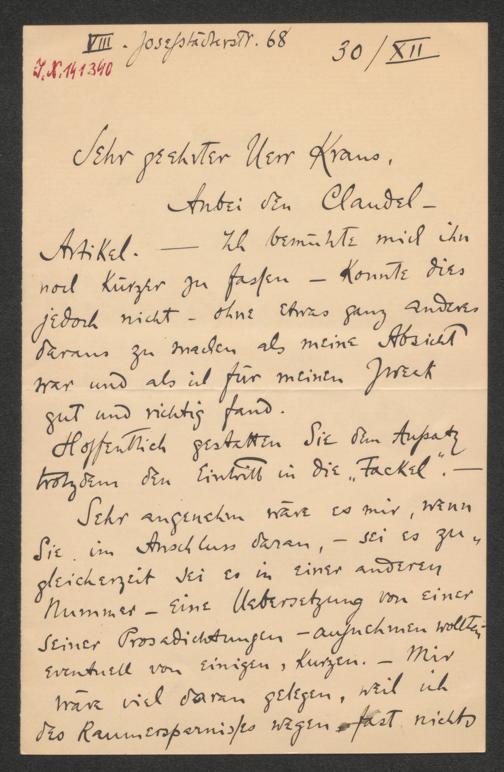 VIII. Josefstädterstr. 68
30/XII
I.N. 141340
Sehr geehrter Herr Kraus,
Anbei den Claudel-
Artikel. — Ich bemühte mich ihn
noch kürzer zu fassen – konnte dies
jedoch nicht – ohne etwas ganz anderes
daraus zu machen als meine Absicht
war und als ich für meinen Zweck
gut und richtig fand.
Hoffentlich gestatten Sie dem Aufsatz
trotzdem den Eintritt in die „Fackel". —
Sehr angenehm wäre es mir, wenn
Sie im Anschluss daran, – sei es zu-
gleicherzeit sei es in einer anderen
Nummer – eine Uebersetzung von einer
seiner Prosadichtungen – aufnehmen wollten,
eventuell von einigen, kurzen. – Mir
wäre viel daran gelegen, weil ich
des Raumersparnisses wegen fast nichts